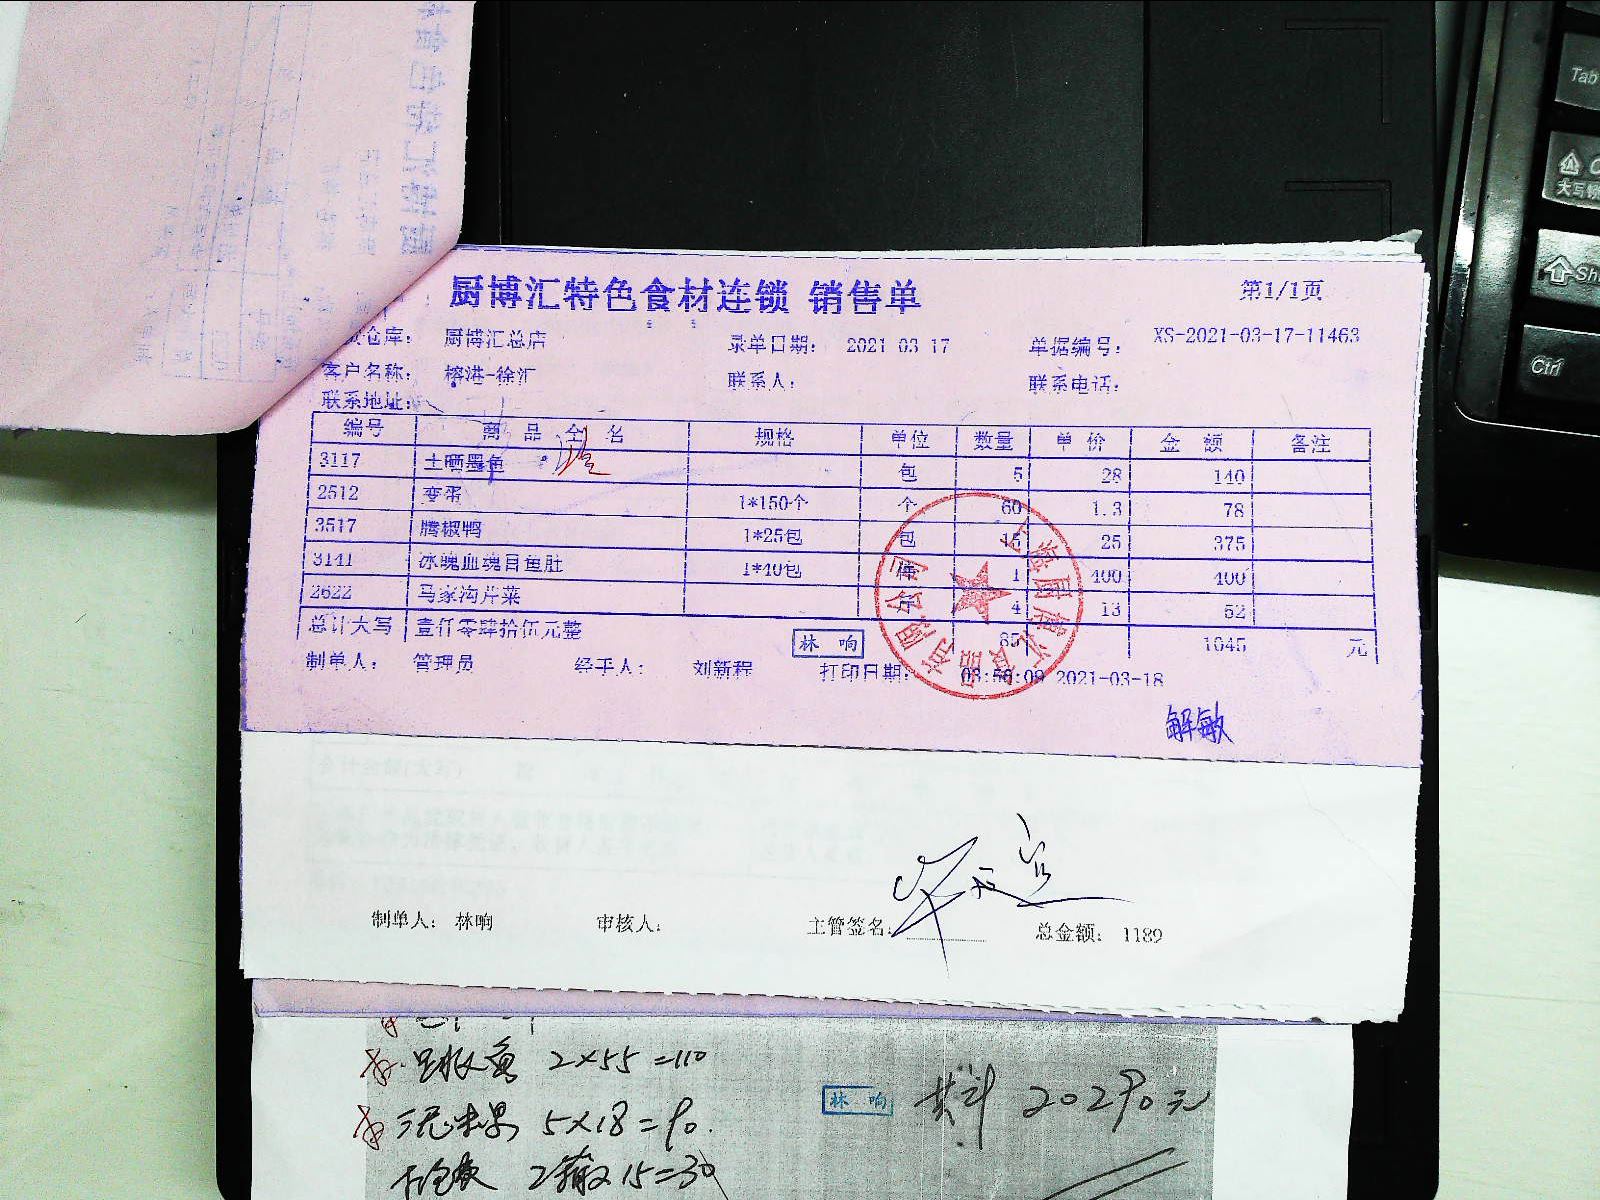 厨博汇特色食材连锁 销售单 第1/1页
仓库: 厨博汇总店 录单日期: 2021 03 17 单据编号: XS-2021-03-17-11463
客户名称: 榕港-徐汇 联系人: 联系电话:
联系地址:
编号 商品全名 规格 单位 数量 单价 金额 备注
3117 土晒墨鱼 包 5 28 140
2512 变蛋 1*150个 个 60 1.3 78
3517 腾椒鸭 1*25包 包 15 25 375
3141 冰魄血魂目鱼肚 1*40包 1 400 400
2622 马家沟芹菜 4 13 52
总计大写 壹仟零肆拾伍元整 林响 85 1045 元
制单人: 管理员 经手人: 刘新程 打印日期: 03:56:09 2021-03-18
解敏
制单人: 林响 审核人: 主管签名: 总金额: 1189
2×55=110
林响 共计 20290元
5×18=90.
15=30
Tab
大写锁
Shi
Ctrl